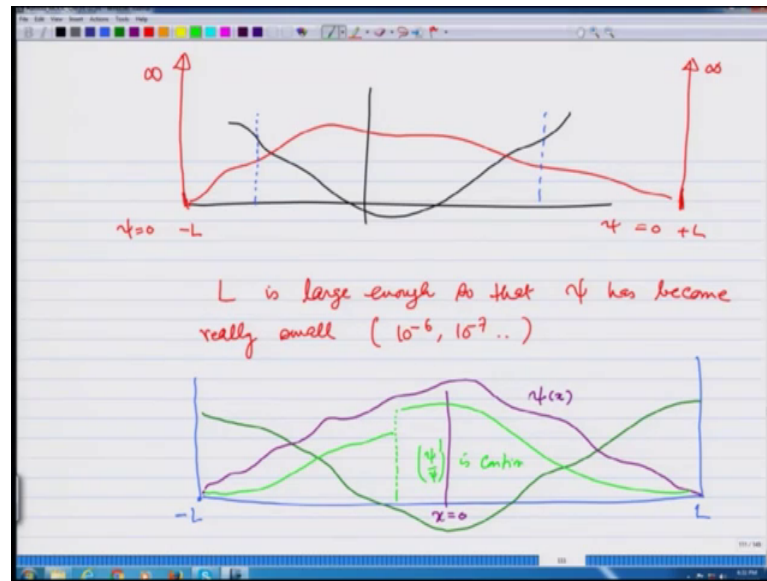 File Edit View Insert Actions Tools Help
∞ ∞
ψ=0 -L ψ = 0 +L
L is large enough so that ψ has become
really small ( 10⁻⁶, 10⁻⁷ .. )
ψ(x)
(ψ'/ψ) is contin
-L x=0 L